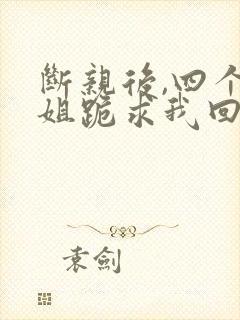 斷親後,四个
姐跪求我回
袁劍